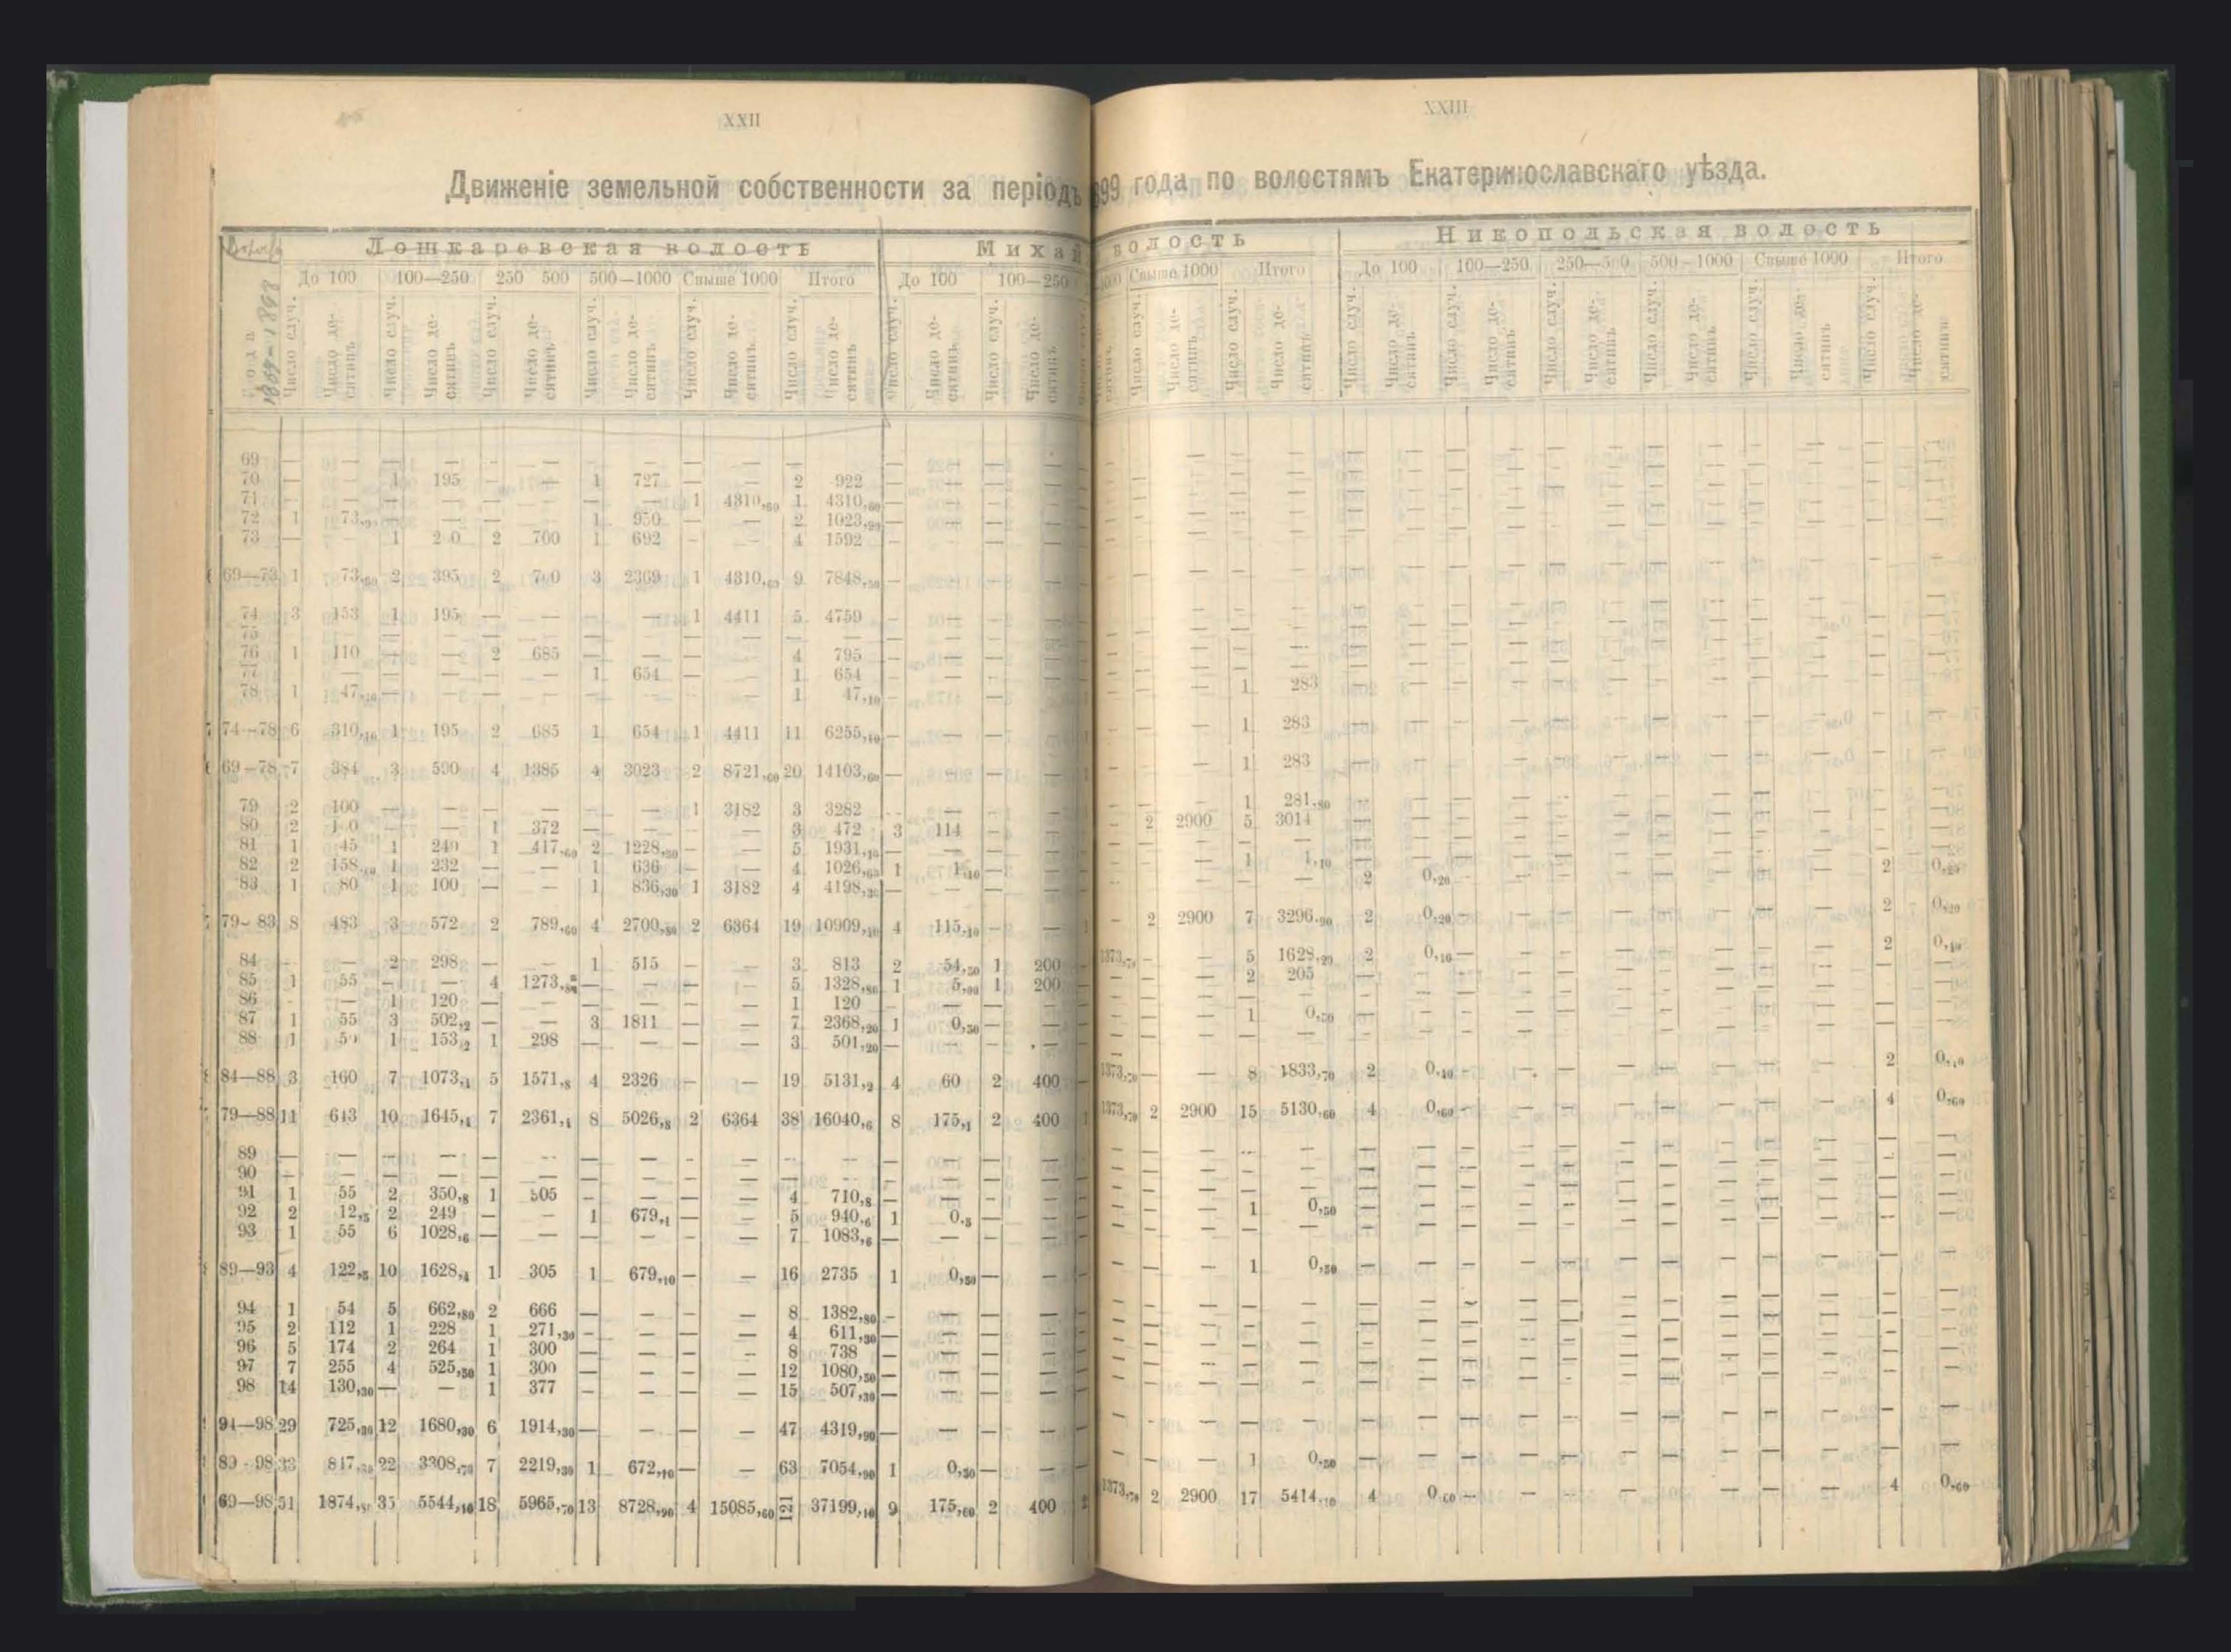 XXII
Движеніе земельной собственности за періодъ
Лошкаревская волость Михай
До 100 100—250 250 500 500—1000 Свыше 1000 Итого До 100 100—250
1869—1898
Число случ. Число де- сятинъ. Число случ. Число де- сятинъ. Число случ. Число де- сятинъ. Число случ. Число де- сятинъ. Число случ. Число де- сятинъ. Число случ. Число де- сятинъ. Число случ. Число де- сятинъ. Число случ. Число де- сятинъ.
69 — — — — — — — — — — — — — — — —
70 — — 1 195 — — 1 727 — — 2 922 — — — —
71 — — — — — — — — 1 4310,60 1 4310,60 — — — —
72 1 73,90 — — — — 1 950 — — 2 1023,90 — — — —
73 — — 1 2 0 2 700 1 692 — — 4 1592 — — — —
69—73 1 73,90 2 395 2 700 3 2369 1 4310,60 9 7848,50 — — — —
74 3 153 1 195 — — — — 1 4411 5 4759 — — — —
75 — — — — — — — — — — — — — — — —
76 1 110 — — 2 685 — — — — 4 795 — — — —
77 — — — — — — 1 654 — — 1 654 — — — —
78 1 47,10 — — — — — — — — 1 47,10 — — — —
74—78 6 310,10 1 195 2 685 1 654 1 4411 11 6255,10 — — — —
69—78 7 384 3 590 4 1385 4 3023 2 8721,60 20 14103,60 — — — —
79 2 100 — — — — — — 1 3182 3 3282 — — — —
80 2 1 0 — — 1 372 — — — — 3 472 3 114 — —
81 1 45 1 240 1 417,60 2 1228,50 — — 5 1931,10 — — — —
82 2 158 1 232 — — 1 636 — — 4 1026,60 1 1,10 — —
83 1 80 1 100 — — 1 836,30 1 3182 4 4198,30 — — — —
79—83 8 483 3 572 2 789,60 4 2700,80 2 6364 19 10909,40 4 115,10 — —
84 — — 2 298 — — 1 515 — — 3 813 2 54,50 1 200
85 1 55 — — 4 1273,80 — — — — 5 1328,80 1 5,00 1 200
86 — — 1 120 — — — — — — 1 120 — — — —
87 1 55 3 502,2 — — 3 1811 — — 7 2368,20 1 0,50 — —
88 1 50 1 153,2 1 298 — — — — 3 501,20 — — — —
84—88 3 160 7 1073,4 5 1571,8 4 2326 — — 19 5131,2 4 60 2 400
79—88 11 643 10 1645,4 7 2361,4 8 5026,8 2 6364 38 16040,6 8 175,1 2 400
89 — — — — — — — — — — — — — — — —
90 — — — — — — — — — — — — — — — —
91 1 55 2 350,8 1 305 — — — — 4 710,8 — — — —
92 2 12,5 2 249 — — 1 679,1 — — 5 940,6 1 0,5 — —
93 1 55 6 1028,6 — — — — — — 7 1083,6 — — — —
89—93 4 122,5 10 1628,4 1 305 1 679,10 — — 16 2735 1 0,50 — —
94 1 54 5 662,80 2 666 — — — — 8 1382,80 — — — —
95 2 112 1 228 1 271,30 — — — — 4 611,30 — — — —
96 5 174 2 264 1 300 — — — — 8 738 — — — —
97 7 255 4 525,50 1 300 — — — — 12 1080,50 — — — —
98 14 130,30 — — 1 377 — — — — 15 507,30 — — — —
94—98 29 725,30 12 1680,30 6 1914,30 — — — — 47 4319,90 — — — —
89—98 33 847 22 3308,70 7 2219,30 1 672,10 — — 63 7054,90 1 0,50 — —
69—98 51 1874 35 5544,10 18 5965,70 13 8728,90 4 15085,60 121 37199,10 9 175,60 2 400
XXIII
899 года по волостямъ Екатеринославскаго уѣзда.
волость Никопольская волость
1000 Свыше 1000 Итого До 100 100—250 250—500 500—1000 Свыше 1000 Итого
Число случ. Число де- сятинъ. Число случ. Число де- сятинъ. Число случ. Число де- сятинъ. Число случ. Число де- сятинъ. Число случ. Число де- сятинъ. Число случ. Число де- сятинъ. Число случ. Число де- сятинъ. Число случ. Число де- сятинъ.
— — — 1 283 — — — — — — — — — — — —
— — — 1 283 — — — — — — — — — — — —
— — — 1 283 — — — — — — — — — — — —
— — — 1 281,80 — — — — — — — — — — — —
— 2 2900 5 3014 — — — — — — — — — — — —
— — — 1 1,10 — — — — — — — — — — — —
— — — — — 2 0,20 — — — — — — — — 2 0,20
— 2 2900 7 3296,90 2 0,20 — — — — — — — — 2 0,20
1373,70 — — 5 1628,20 2 0,40 — — — — — — — — 2 0,40
— — — 2 205 — — — — — — — — — — — —
— — — — — — — — — — — — — — — — —
— — — 1 0,50 — — — — — — — — — — — —
— — — — — — — — — — — — — — — — —
1373,70 — — 8 1833,70 2 0,40 — — — — — — — — 2 0,40
1373,70 2 2900 15 5130,60 4 0,60 — — — — — — — — 4 0,60
— — — 1 0,50 — — — — — — — — — — — —
— — — — — — — — — — — — — — — — —
— — — 1 0,50 — — — — — — — — — — — —
— — — 1 0,50 — — — — — — — — — — — —
1373,70 2 2900 17 5414,10 4 0,60 — — — — — — — — 4 0,60